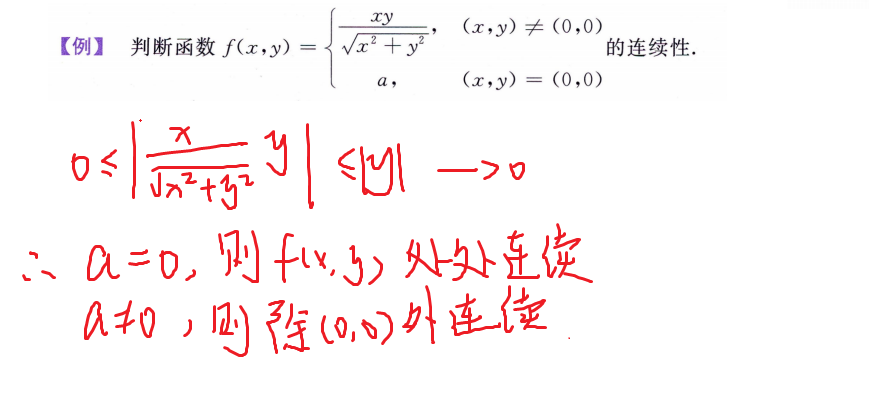 【例】 判断函数 f(x,y) = { xy/√(x² + y²), (x,y) ≠ (0,0) 的连续性.
a, (x,y) = (0,0)
0 ≤ | x/√(x²+y²) y | ≤ |y| → 0
∴ a=0, 则 f(x,y) 处处连续
a≠0, 则除(0,0)外连续